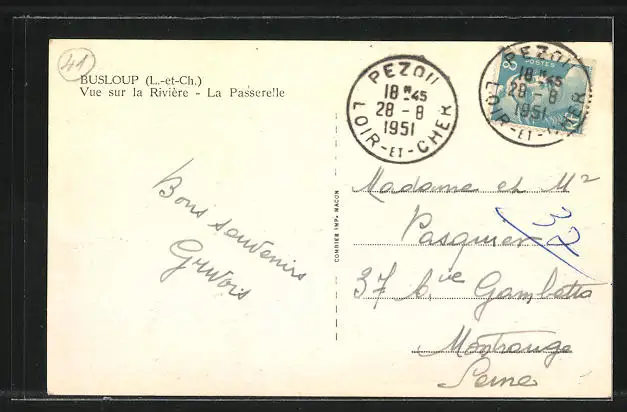 41
BUSLOUP (L.-et-Ch.)
Vue sur la Rivière - La Passerelle
PEZOU
18 H 45
28 - 8
1951
LOIR-ET-CHER
POSTES
8F
PEZOU
18 H 45
28 - 8
1951
LOIR-ET-CHER
Bons souvenirs
COMBIER IMP. MACON
Madame et Mr
Pasquier
37
37 Ave Gambetta
Montrouge
Seine